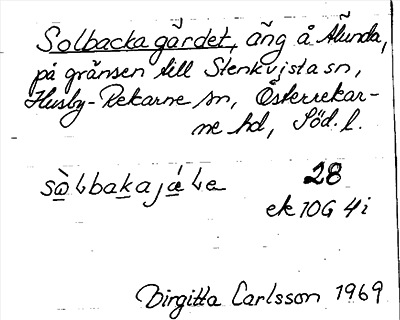 Solbackagärdet, äng å Ålunda,
på gränsen till Stenkvista sn,
Husby-Rekarne sn, Österrekar-
ne hd, Söd. l.
28
ek 10G 4i
Birgitta Carlsson 1969